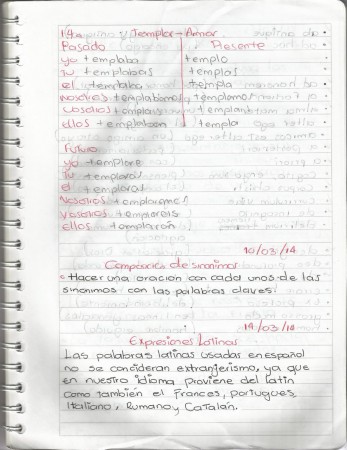 Templar - Amar
Pasado Presente
yo templaba templo
Tu templabas templas
el templaba templa
Nosotros templabamos templamos
Vosotros templais
ellos templaban templa
Futuro
yo templare
Tu templaras
el templaras
Nosotros templaremos
Vosotros templareis
ellos templarán
10/03/14
Composición de sinonimos
Hacer una oracion con cada unos de las
sinonimos con las palabras claves.
19/03/14
Expresiones Latinas
Las palabras latinas usadas en español
no se concideran extranjerismo, ya que
en nuestro idioma proviene del latin
como también el Frances, portugues,
Italiano, Rumano y Catalán.